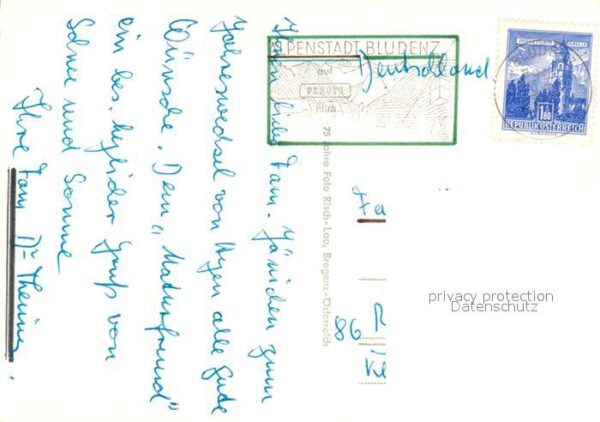 Ihnen lieber Fam. Jänichen zum
Jahreswechsel von Herzen alle Gute
Wünsche. Dem „Naturfreund"
ein bes. Gruß von
Schnee und Sonne
Ihre Fam Dr. Theiner.
75 Jahre Foto Risch-Lau, Bregenz-Österreich
ALPENSTADT BLUDENZ
auf
PERUTZ
Film
Deutschland
1.80
REPUBLIK ÖSTERREICH
Fa
86
privacy protection
Datenschutz